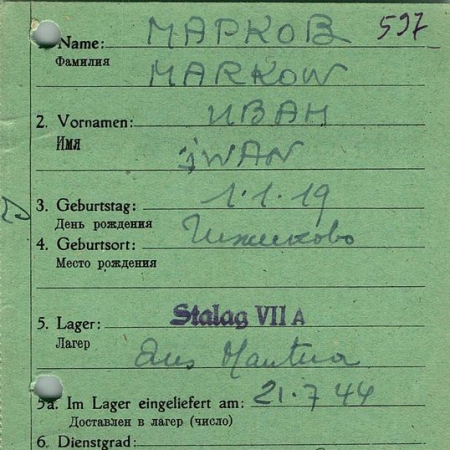 Name: МАРКОВ 597
Фамилия
MARKOW
2. Vornamen: ИВАН
Имя
IWAN
3. Geburtstag: 1.1.19
День рождения
4. Geburtsort:
Место рождения
5. Lager: Stalag VII A
Лагер
Aus Mantua
5a. Im Lager eingeliefert am: 21.7.44
Доставлен в лагер (число)
6. Dienstgrad: